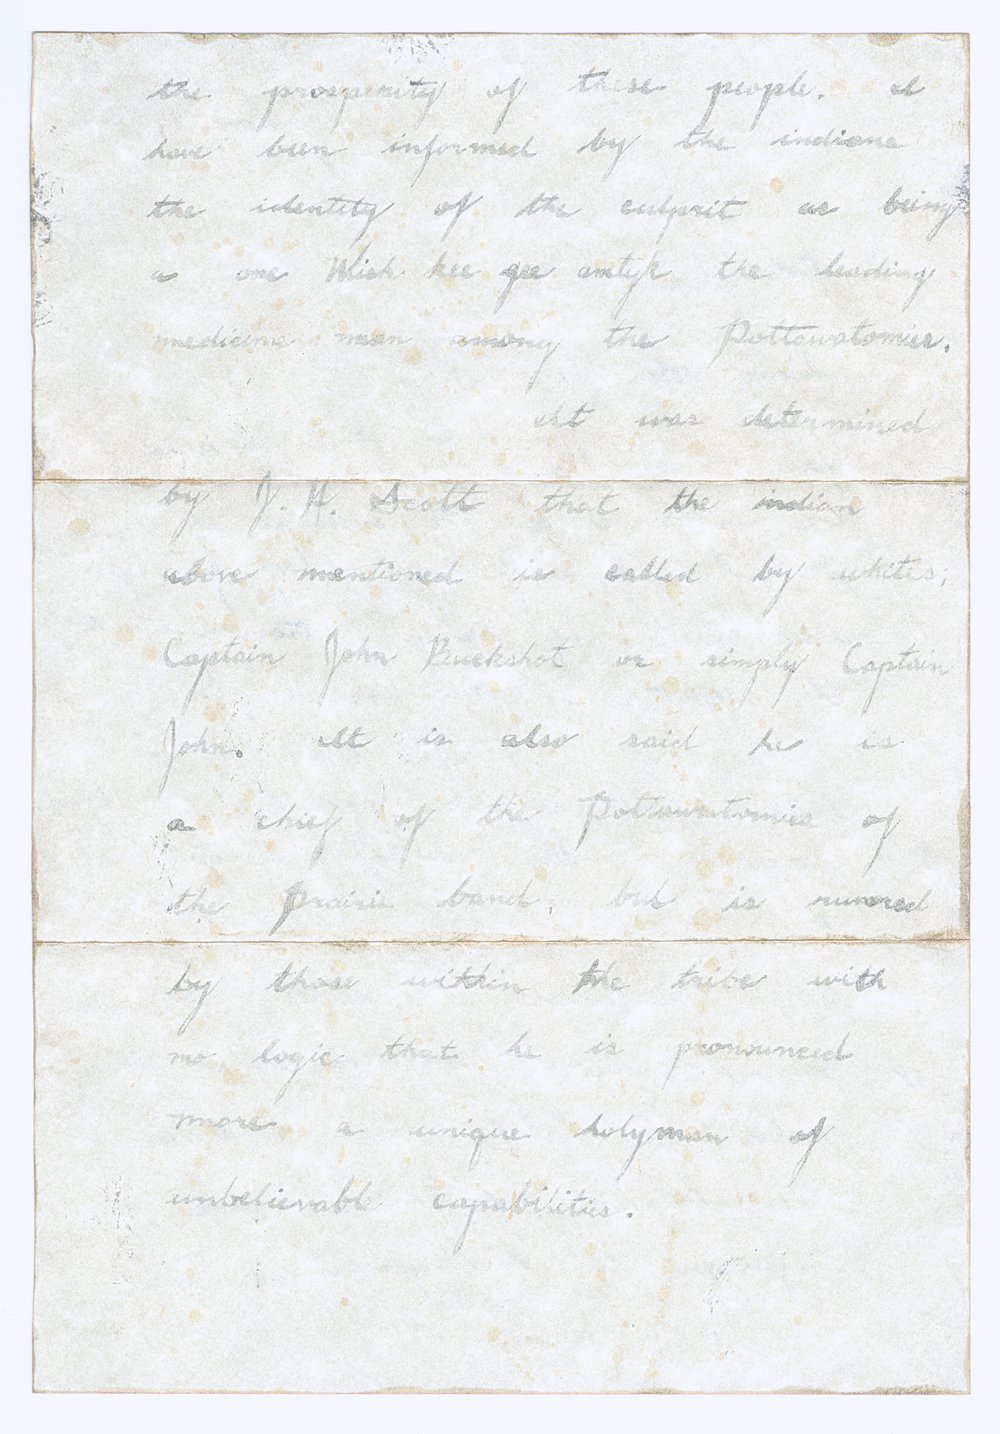 the prosperity of these people. I
have been informed by the indians
the identity of the culprit as being
a one Mish kee gee amtyk the leading
medicine man among the Pottawatomies.
It was determined
by J. A. Scott that the indian
above mentioned is called by whites;
Captain John Buckshot or simply Captain
John. It is also said he is
a chief of the Pottawatomies of
the prairie band, but is rumred
by those within the tribe with
no logic that he is pronounced
more a unique holyman of
unbelievable capabilities.